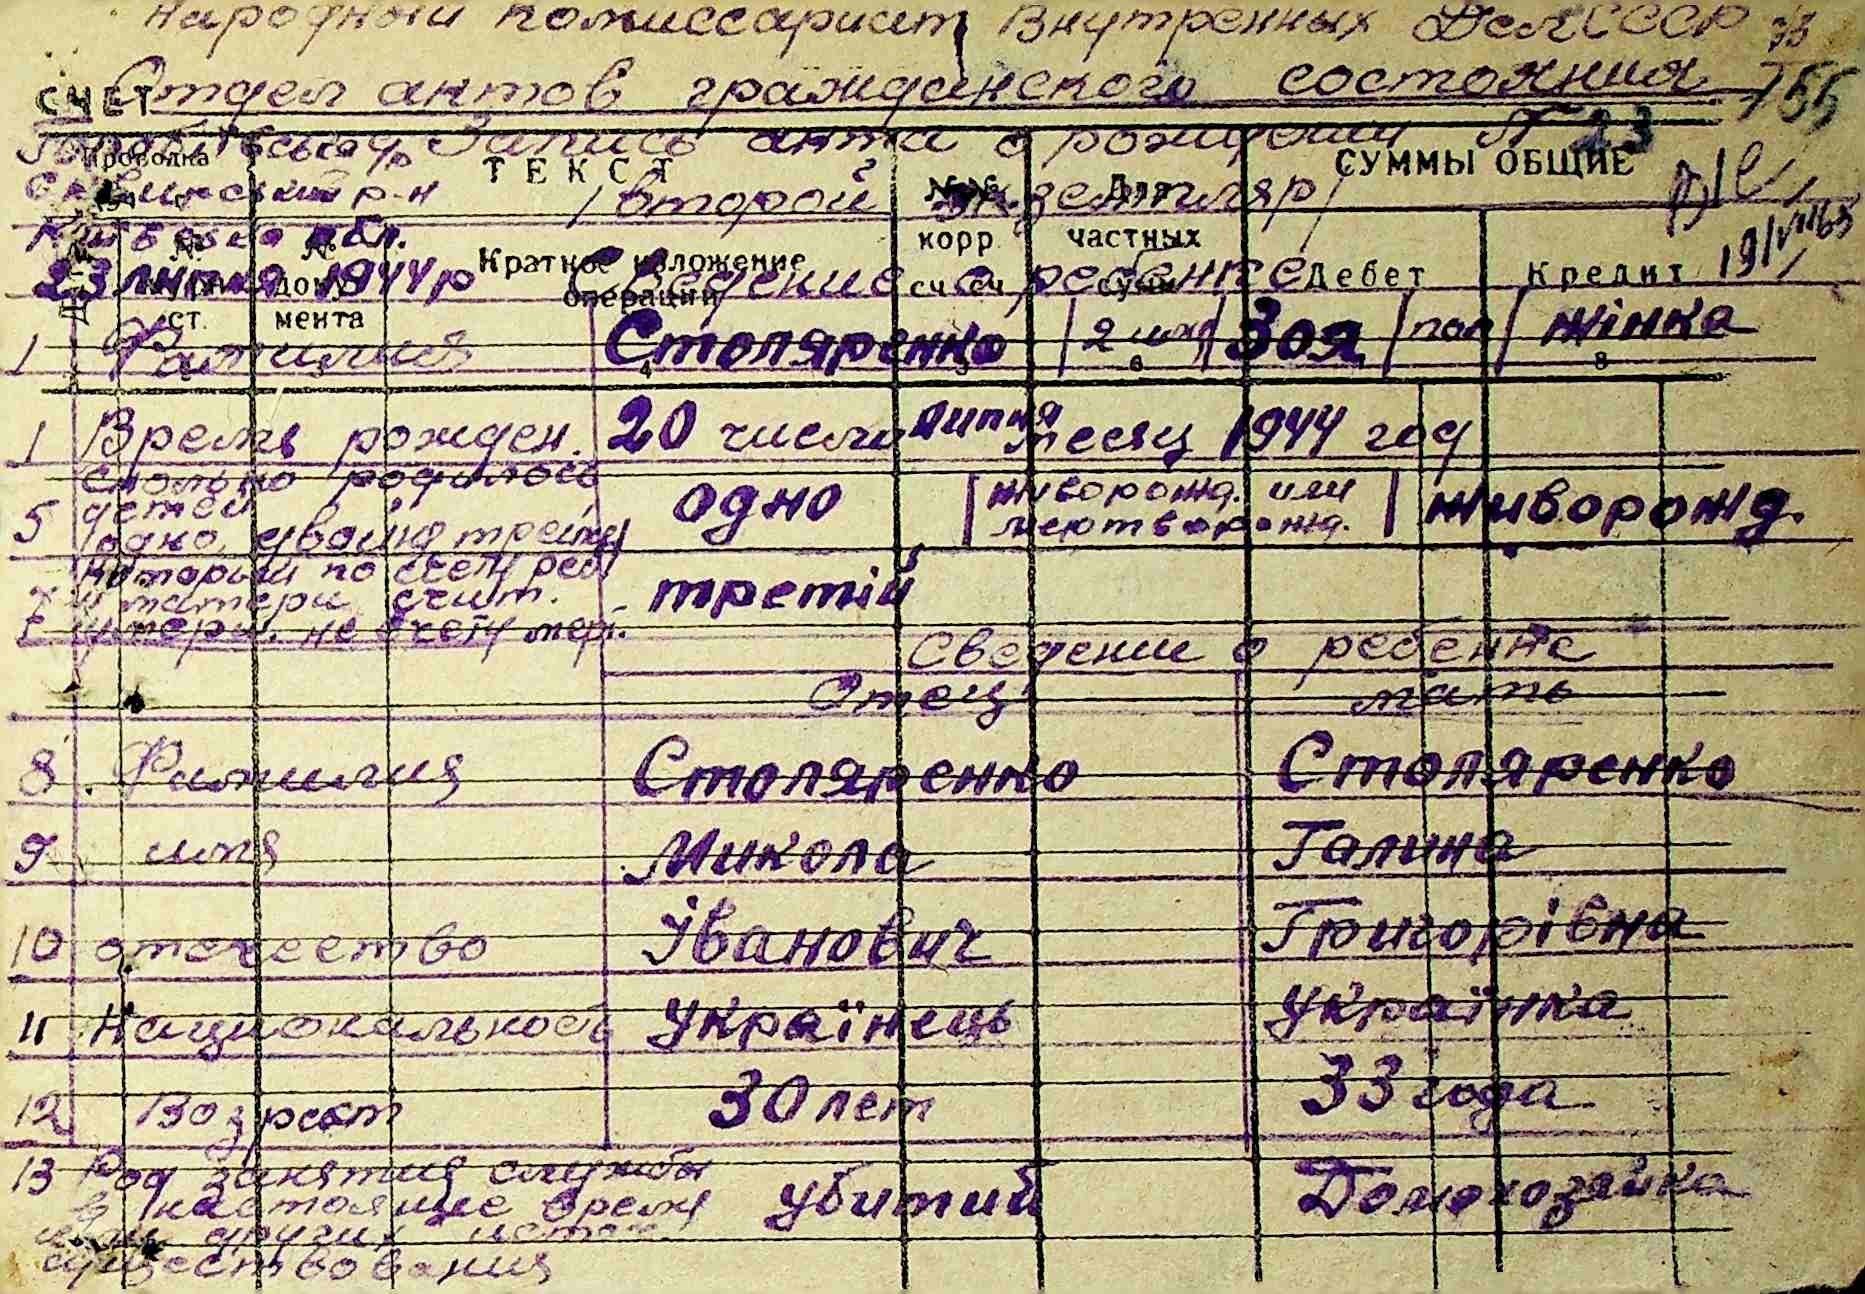 Народный Комиссариат Внутренных Дел СССР
Отдел актов гражданского состояния 155
СЧЕТ
Запись акта о рождении № 23
Проводка ТЕКСТ СУММЫ ОБЩИЕ
Сквирський р-н /второй экземпляр/
обл. корр. частных
23 липня 1944 р Краткое изложение операции Сведение о ребенке сч сч Дебет Кредит
ст. доку мента
1 Фамилия Столяренко 2 имя Зоя пол жінка
4 6 8
1 Время рожден. 20 число липня месяц 1944 год
5 Сколько родилось детей одно, двойня тройня одно живорожд. или мертворожд. живорожд.
7 который по счету реб. у матери счит. третій
Сведении о ребенке
Отец мать
8 Фамилия Столяренко Столяренко
9 имя Микола Галина
10 отечество Іванович Григорівна
11 Национальность Українець Українка
12 Возраст 30 лет 33 года
13 Род занятия службы в настоящие время убитий Домохозяйка
или других источ.
существования